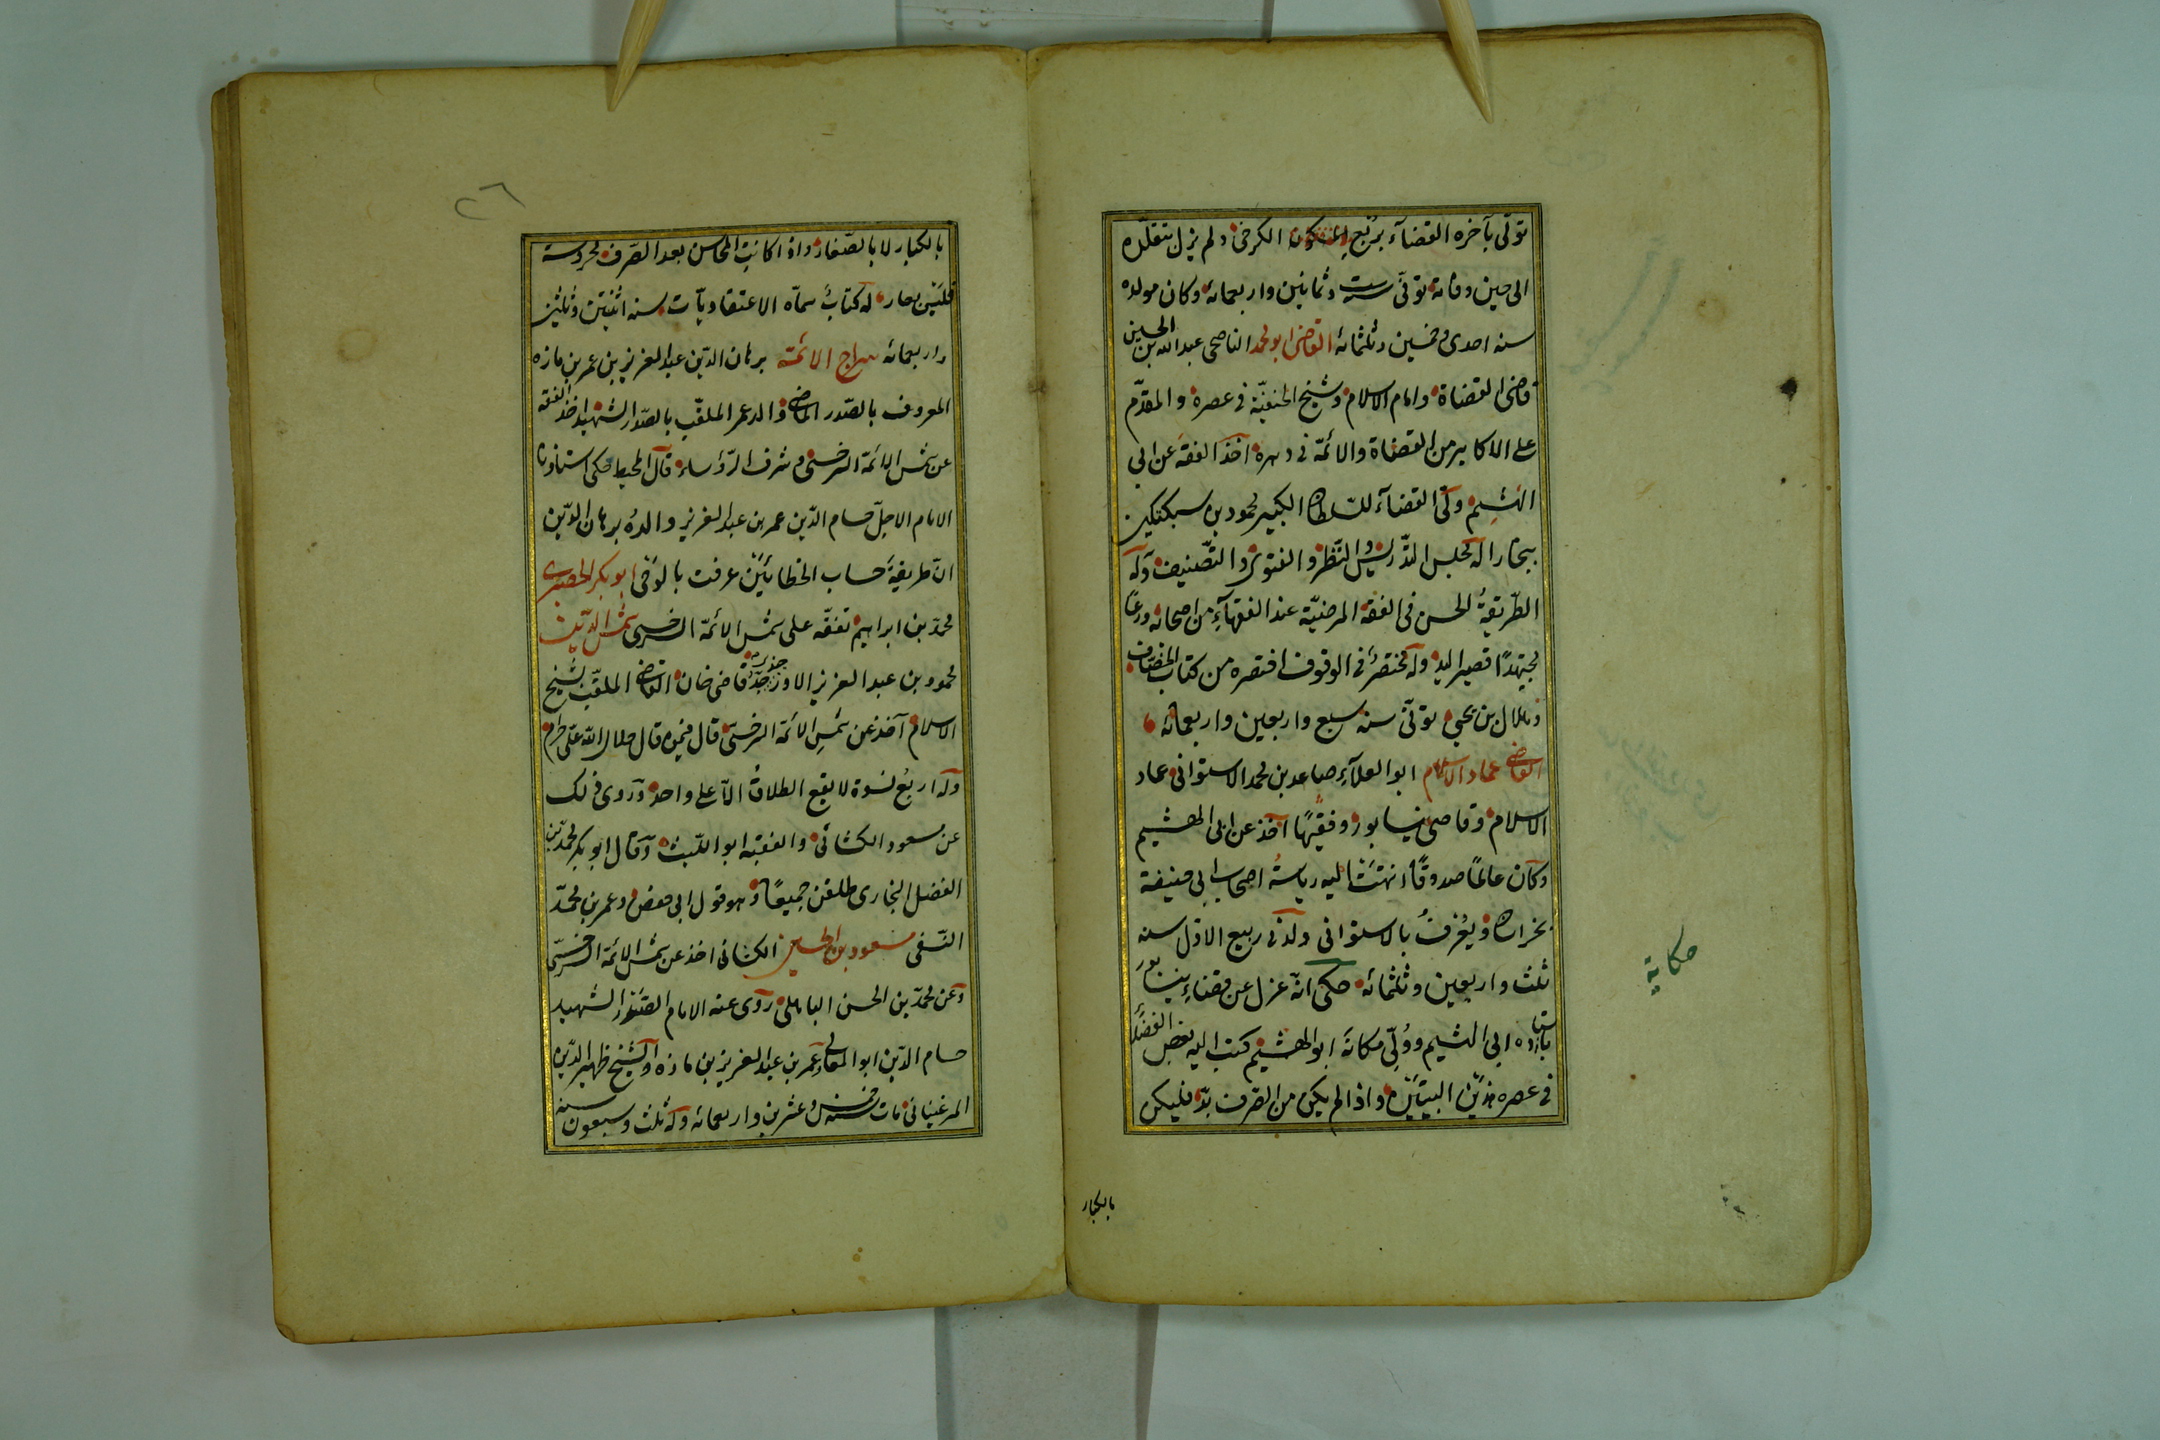 تولّى بآخره القضاء بربع الكرخ ولم يزل يتقلّده
الى حين وفاته توفّى سنة ست وثمانين واربعمائة وكان مولده
سنة احدى وخمسين وثلثمائة القاضى ابو محمد الناصحى عبد الله بن الحسين
قاضى القضاة وامام الاسلام وشيخ الحنفيّة فى عصره والمقدّم
على الاكابر من القضاة والائمّة فى دهره اخذ الفقه عن ابى
الهشيم ولّى القضاء للسّلطان الكبير محمود بن سبكتكين
ببخارا له مجلس التّدريس والنّظر والفتوى والتّصنيف وله
الطّريقةُ الحسن فى الفقه المرضيّة عند الفقهآءِ من اصحابه ورعًا
مجتهدًا قصير اليد وله مختصرٌ فى الوقوف اختصره من كتاب الخصّاف
وهلال بن يحيى توفّى سنة سبع واربعين واربعمائة
القاضى عماد الاسلام ابو العلآءِ صاعد بن محمد الاستوائى عماد
الاسلام وقاضى نيسابور وفقيهًا اخذ عن ابى الهشيم
وكان عالمًا صدوقًا انتهَتْ اليه رياسةُ اصحاب ابى حنيفة
بخراسان ويُعْرفُ بالاستوائى ولد فى ربيع الاوّل سنة
ثلث واربعين وثلثمائة حكى انّه عزل عن قضاءِ نيسابور
باستاده ابى الهشيم ووُلّى مكانَه ابو الهشيم كتب اليه بعض الفضلاء
فى عصره هذَين البيتَين واذا لم يكن من الصّرف بدّ فليكن
بالكبار
حكاية
٢٦
بالكبار لا بالصّغار واذا كانت المحاسن بعد الصّرف محروسة
فليس بعار له كتابٌ سمّاه الاعتقاديّات سنة اثنتين وثلثين
واربعمائة سراج الائمّة برهان الدّين عبد العزيز بن عمر بن مازه
المعروف بالصّدر الماضى والد عمر الملقّب بالصّدر الشّهيد اخذ الفقه
عن شمس الائمّة السّرخسى وشرف الرّؤساء قال المحيط حكى استاذنا
الامام الاجلّ حسام الدّين عمر بن عبد العزيز والدهُ برهان الدّين
انّ طريقةَ حساب الخطائَيْن عرفت بالوَحْى ابو بكر الحصيرى
محمّد بن ابراهيم تفقّه على شمس الائمّة السّرخسى شمس الدّين
محمود بن عبد العزيز الاوزجندى جدّ قاضى خان القاضى الملقّب بشيخ
الاسلام اخذ عن شمس الائمّة السّرخسى قال فيمن قال حلال الله علىّ حرام
وله اربعُ نسوة لا يقع الطلاقُ الّا على واحدة وروى ذلك
عن مسعود الكشانى والفقيه ابو اللّيث وقال ابو بكر محمّد بن
الفضل البخارى طلقن جميعًا وهو قول ابى حفص وعمر بن محمّد
النّسفى مسعود بن الحسين الكشانى اخذ عن شمس الائمّة السّرخسى
وعن محمّد بن الحسن الباهلى روى عنه الامام الصّدر الشّهيد
حسام الدّين ابو المعالى عمر بن عبد العزيز بن مازه والشّيخ ظهير الدّين
المرغينانى مات سنة خمس وعشرين واربعمائة وله ثلث وسبعون سنة